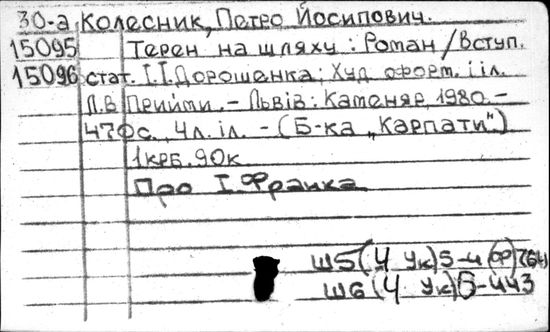 30-а Колесник, Петро Йосипович.
15095 Терен на шляху: Роман / Вступ.
15096 стат. І.І. Дорошенка; Худ. оформ. і іл.
Л.В. Прийми. - Львів: Каменяр, 1980. -
47 с., 4 л. іл. - (Б-ка „Карпати“)
1 крб. 90к
Про І. Франка
Ш5(4 Ук)5-4(Ф)
Ш6(4 Ук)6-443